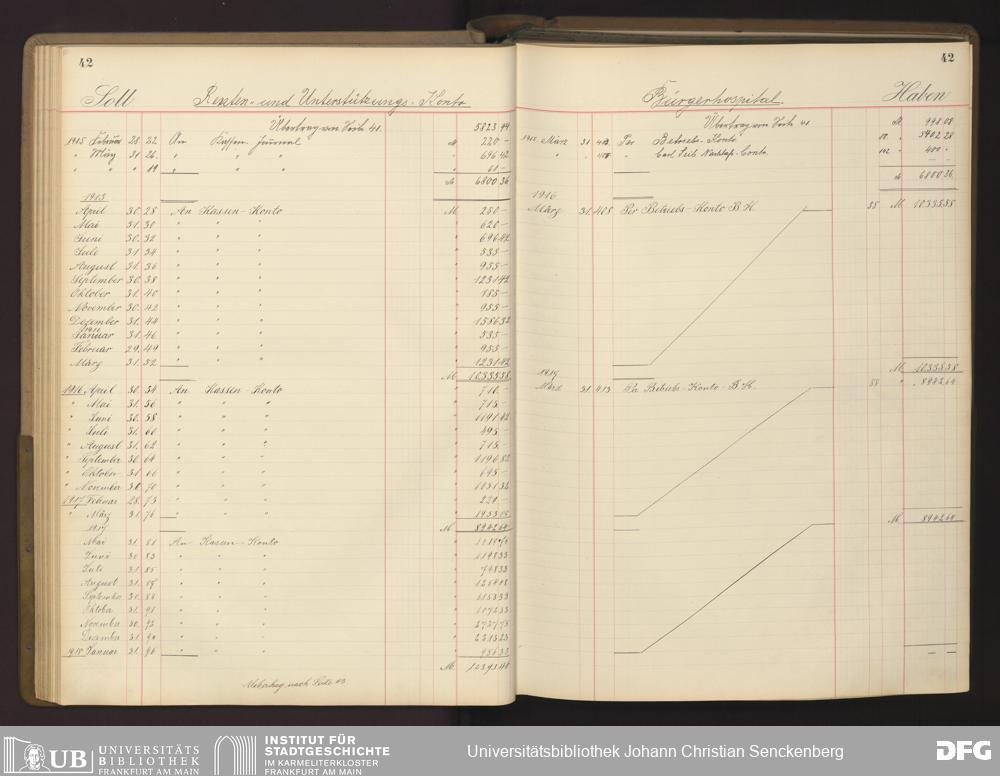 42
Soll Renten- und Unterstützungs-Konto
Übertrag von Seite 41. 5823 94
1915 Februar 28. 22 An Kassen-Journal M 220 –
" März 31. 26. " " " " 696 42
" " " " " " " 60 –
M 6800 36
1915
April 30. 28 An Kassen-Konto M. 250 –
Mai 31. 30 " " " " 620 –
Juni 30. 32 " " " " 696 42
Juli 31. 34 " " " " 535 –
August 31. 36 " " " " 955 –
September 30. 38 " " " " 1231 42
Oktober 31. 40 " " " " 185 –
November 30. 42 " " " " 955 –
Dezember 31. 44 " " " " 1586 32
1916
Januar 31. 46 " " " " 535 –
Februar 29. 49 " " " " 955 –
März 31. 52 " 1231 42
M. 10335 58
1916 April 30. 54 An Kassen-Konto " 710 –
" Mai 31. 56 " " " " 715 –
" Juni 30. 58 " " " " 1191 42
" Juli 31. 60 " " " " 495 –
" August 31. 62 " " " " 715 –
" September 30. 64 " " " " 1196 82
" Oktober 31. 66 " " " " 695 –
" November 30. 70 " " " " 1031 36
1917 Februar 28. 73 " " " " 220 –
" März 31. 76 " " "
M. 8942 60
1917
Mai 31. 81 An Kassen-Konto "
Juni 30. 83 " " " " 1198 33
Juli 31. 85 " " " " 748 33
August 31. " " " "
September 30. 88 " " " " 1153 33
Oktober 31. 91 " " " " 1072 33
November 30. 92 " " " " 2727 78
Dezember 31. 94 " " " " 2213 23
1918 Januar 31. 96 " " 956 33
M. 12393 40
Uebertrag nach Seite 43.
42
Bürgerhospital. Haben
Übertrag von Seite 41 M. 998 08
1915 März 31. Per Betriebs-Konto 5402 28
" " " Conto 400 –
M 6800 36
1916
März 31. 408 Per Betriebs-Konto B.H. 58 M. 10335 58
M. 10335 58
1917
März 31. 413 Per Betriebs-Konto B.H. 58 " 8942 60
M. 8942 60
UB UNIVERSITÄTS
BIBLIOTHEK
FRANKFURT AM MAIN
INSTITUT FÜR
STADTGESCHICHTE
IM KARMELITERKLOSTER
FRANKFURT AM MAIN
Universitätsbibliothek Johann Christian Senckenberg
DFG